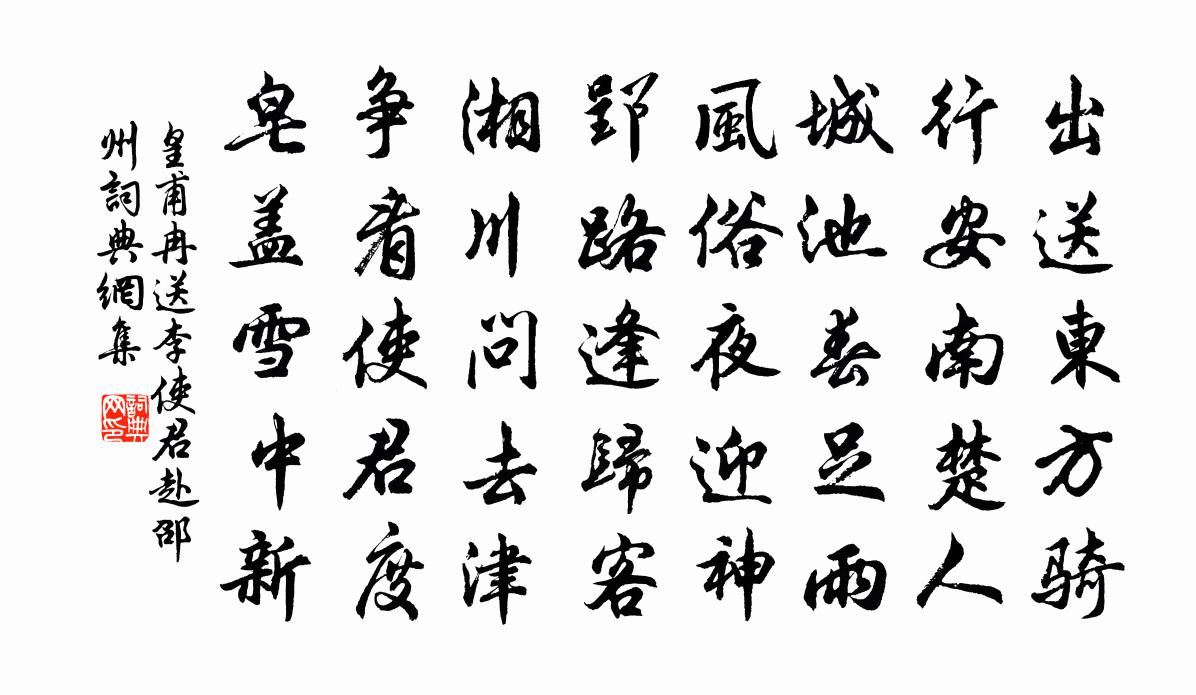 出送東方骑
行安南楚人
城池春足雨
風俗夜迎神
郢路逢歸客
湘川問去津
争看使君度
皂盖雪中新
皇甫冉送李使君赴邵
州詞典網集
詞典网印